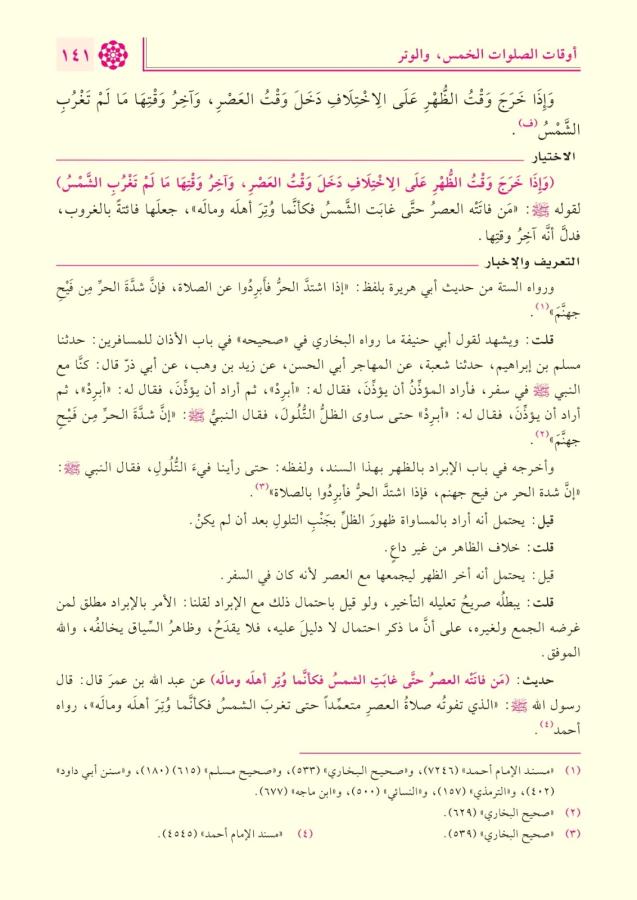 أوقات الصلوات الخمس، والوتر
١٤١
وَإِذَا خَرَجَ وَقْتُ الظُّهْرِ عَلَى الِاخْتِلَافِ دَخَلَ وَقْتُ العَصْرِ، وَآخِرُ وَقْتِهَا مَا لَمْ تَغْرُبِ
الشَّمْسُ (ف).
الاختيار
(وَإِذَا خَرَجَ وَقْتُ الظُّهْرِ عَلَى الِاخْتِلَافِ دَخَلَ وَقْتُ العَصْرِ، وَآخِرُ وَقْتِهَا مَا لَمْ تَغْرُبِ الشَّمْسُ)
لقوله ﷺ: «مَن فاتَتْه العصرُ حتَّى غابَت الشَّمسُ فكأنَّما وُتِرَ أهلَه ومالَه»، جعلَها فائتةً بالغروب،
فدلَّ أنَّه آخِرُ وقتِها.
التعريف والإخبار
ورواه الستة من حديث أبي هريرة بلفظ: «إذا اشتدَّ الحرُّ فأَبرِدُوا عن الصلاة، فإنَّ شدَّةَ الحرِّ مِن فَيْحِ
جهنَّمَ»(١).
قلت: ويشهد لقول أبي حنيفة ما رواه البخاري في «صحيحه» في باب الأذان للمسافرين: حدثنا
مسلم بن إبراهيم، حدثنا شعبة، عن المهاجر أبي الحسن، عن زيد بن وهب، عن أبي ذرّ قال: كنَّا مع
النبي ﷺ في سفر، فأراد المؤذِّنُ أن يؤذِّنَ، فقال له: «أبرِدْ»، ثم أراد أن يؤذِّنَ، فقال له: «أبرِدْ»، ثم
أراد أن يؤذِّنَ، فقال له: «أبرِدْ» حتى ساوى الظلُّ التُّلُولَ، فقال النبيُّ ﷺ: «إنَّ شدَّةَ الحرِّ مِن فَيْحِ
جهنَّمَ»(٢).
وأخرجه في باب الإبراد بالظهر بهذا السند، ولفظه: حتى رأينا فيءَ التُّلُولِ، فقال النبي ﷺ:
«إنَّ شدة الحر من فيح جهنم، فإذا اشتدَّ الحرُّ فأبرِدُوا بالصلاة»(٣).
قيل: يحتمل أنه أراد بالمساواة ظهورَ الظلِّ بجَنْبِ التلولِ بعد أن لم يكنْ.
قلت: خلاف الظاهر من غير داعٍ.
قيل: يحتمل أنه أخر الظهر ليجمعها مع العصر لأنه كان في السفر.
قلت: يبطلُه صريحُ تعليله التأخير، ولو قيل باحتمال ذلك مع الإبراد لقلنا: الأمر بالإبراد مطلق لمن
غرضه الجمع ولغيره، على أنَّ ما ذكر احتمال لا دليلَ عليه، فلا يقدَحُ، وظاهرُ السِّياق يخالفُه، والله
الموفق.
حديث: (مَن فاتَتْه العصرُ حتَّى غابَتِ الشمسُ فكأنَّما وُتِر أهلَه ومالَه) عن عبد الله بن عمرَ قال: قال
رسول الله ﷺ: «الذي تفوتُه صلاةُ العصرِ متعمِّداً حتى تغربَ الشمسُ فكأنَّما وُتِرَ أهلَه ومالَه»، رواه
أحمد(٤).
(١) «مسند الإمام أحمد» (٧٢٤٦)، و«صحيح البخاري» (٥٣٣)، و«صحيح مسلم» (٦١٥) (١٨٠)، و«سنن أبي داود»
(٤٠٢)، و«الترمذي» (١٥٧)، و«النسائي» (٥٠٠)، و«ابن ماجه» (٦٧٧).
(٢) «صحيح البخاري» (٦٢٩).
(٣) «صحيح البخاري» (٥٣٩). (٤) «مسند الإمام أحمد» (٤٥٤٥).